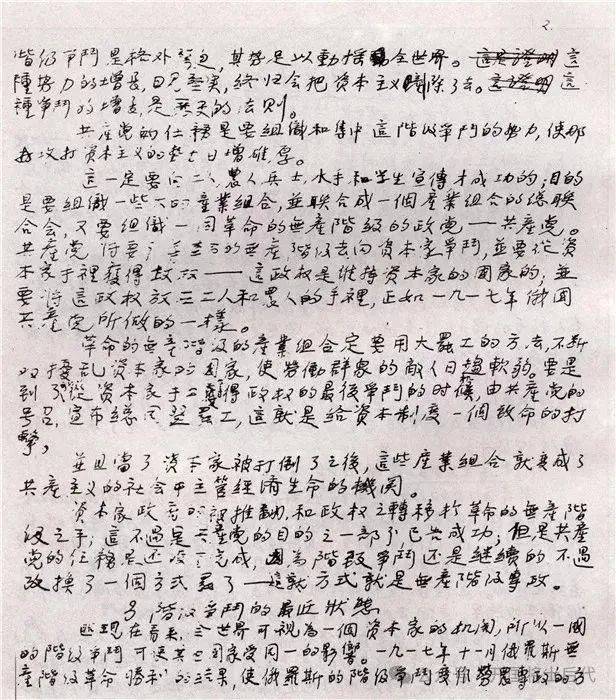 2.
階伋爭鬥是格外 急, 其势足以動搖 全世界。 這是證明 這
種势力的增長, 日見 实, 終归会把資本主义 除了去。這證明 這
種爭鬥的增長, 是 天的法則。
共产党的任務是要組織和集中這階伋爭鬥的势力, 使那
攻打資本主义的势力日增雄厚。
這一定要向工人農人兵士, 水手和学生宣傳才成功的; 目的
是要組織一些大的產業組合, 並联合成一個產業組合的總联
合会, 又要組織一 同革命的無產階級的政党——共產党。
共產党 將要 的無產階伋去向資本家爭鬥, 並要從資
本家手裡獲得政权——這政权是維持資本家的國家的, 並
要將這政权放在工人和農人的手裡, 正如一九一七年俄囯
共產党所做的一樣。
革命的無產階伋的產業組合定要用大罷工的方法, 不断
的擾乱資本家的囯家, 使勞働群眾的敵人日趨軟弱。要是
到了從資本家手上 得政权的最後爭鬥的时候, 由共產党的
号召, 宣布總同盟罷工, 這就是給資本制度一個致命的打
擊,
並且當了資本家被打倒了之後, 這些產業組合就变成了
共產主义的社会中主管經濟生命的機関。
資本家政 的被推翻, 和政权之轉移於革命的無產階
伋之手; 這不過是共產党的目的之一部分已告成功; 但是共產
党的任務是还沒 完成, 因為階級爭鬥还是継續的, 不過
改換了一個方式罷了——這 方式就是無產階伋專政。
3 階伋爭鬥的最近狀態
從現在看來, 全世界可視為一個資本家的机関, 所以一囯
的階級爭鬥可使其 囯家受同一的影響。一九一七年十月俄羅斯無
產階級革命 勝利的結果, 使俄羅斯的階級爭鬥 勞農專 的